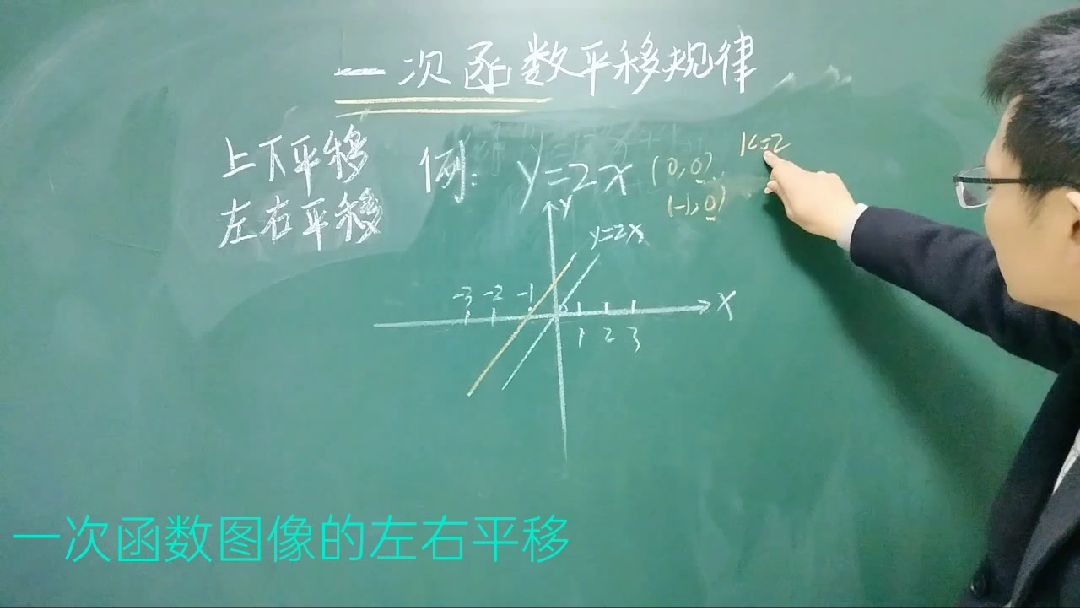 一次函数平移规律
上下平移
左右平移
例: y=2x (0,0) k=2
(-1,0)
y
y=2x
-3 -2 -1
x
1 2 3
一次函数图像的左右平移